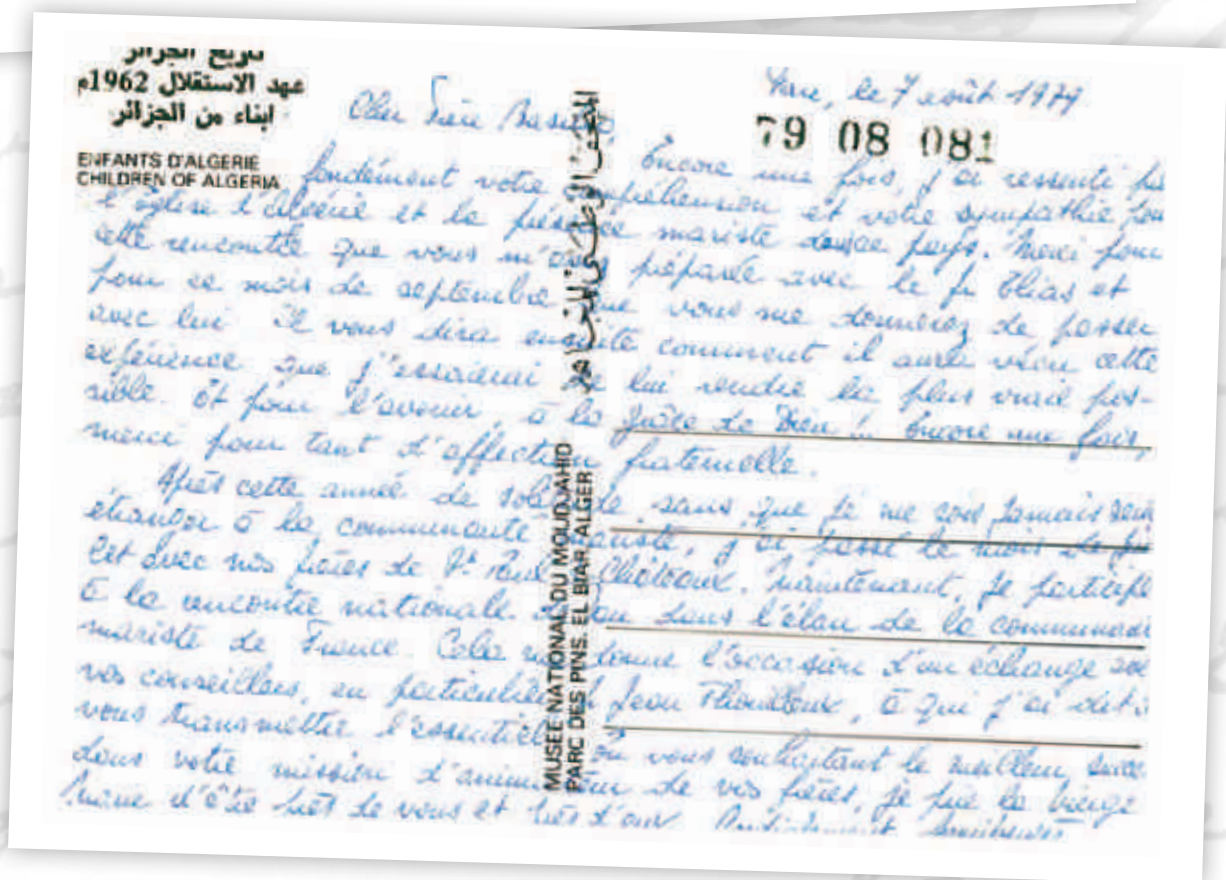 تاريخ الجزائر
عهد الاستقلال 1962م
ابناء من الجزائر
ENFANTS D'ALGERIE
CHILDREN OF ALGERIA
le 7 août 1979
79 08 081
Cher Frère
Encore une fois, j'ai ressenti
fondément votre compréhension et votre sympathie
l'église d'Algérie et la présence mariste dans ce pays. Merci pour
cette rencontre que vous m'avez préparée avec le fr. et
pour ce mois de septembre que vous me donnerez de passer
avec lui. Il vous dira ensuite comment il aura vécu cette
expérience que j'essaierai de lui rendre la plus vraie pos-
sible. Et pour l'avenir, à la grâce de Dieu !.. Encore une fois,
merci pour tant d'affection fraternelle.
Après cette année de solitude, sans que je me sois jamais senti
étranger à la communauté mariste, j'ai passé le mois de
let avec nos frères de St Paul 3 Châteaux. Maintenant, je participe
à la rencontre nationale. dans l'élan de la
mariste de France. Cela me donne l'occasion d'un échange
vos conseillers, en particulier Jean à qui j'ai
vous transmettre l'essentiel. En vous souhaitant le meilleur
dans votre mission d'animateur de vos frères, je prie la Vierge
Marie d'être près de vous et près d'eux.
المتحف الوطني للمجاهد
MUSEE NATIONAL DU MOUDJAHID
PARC DES PINS. EL BIAR. ALGER